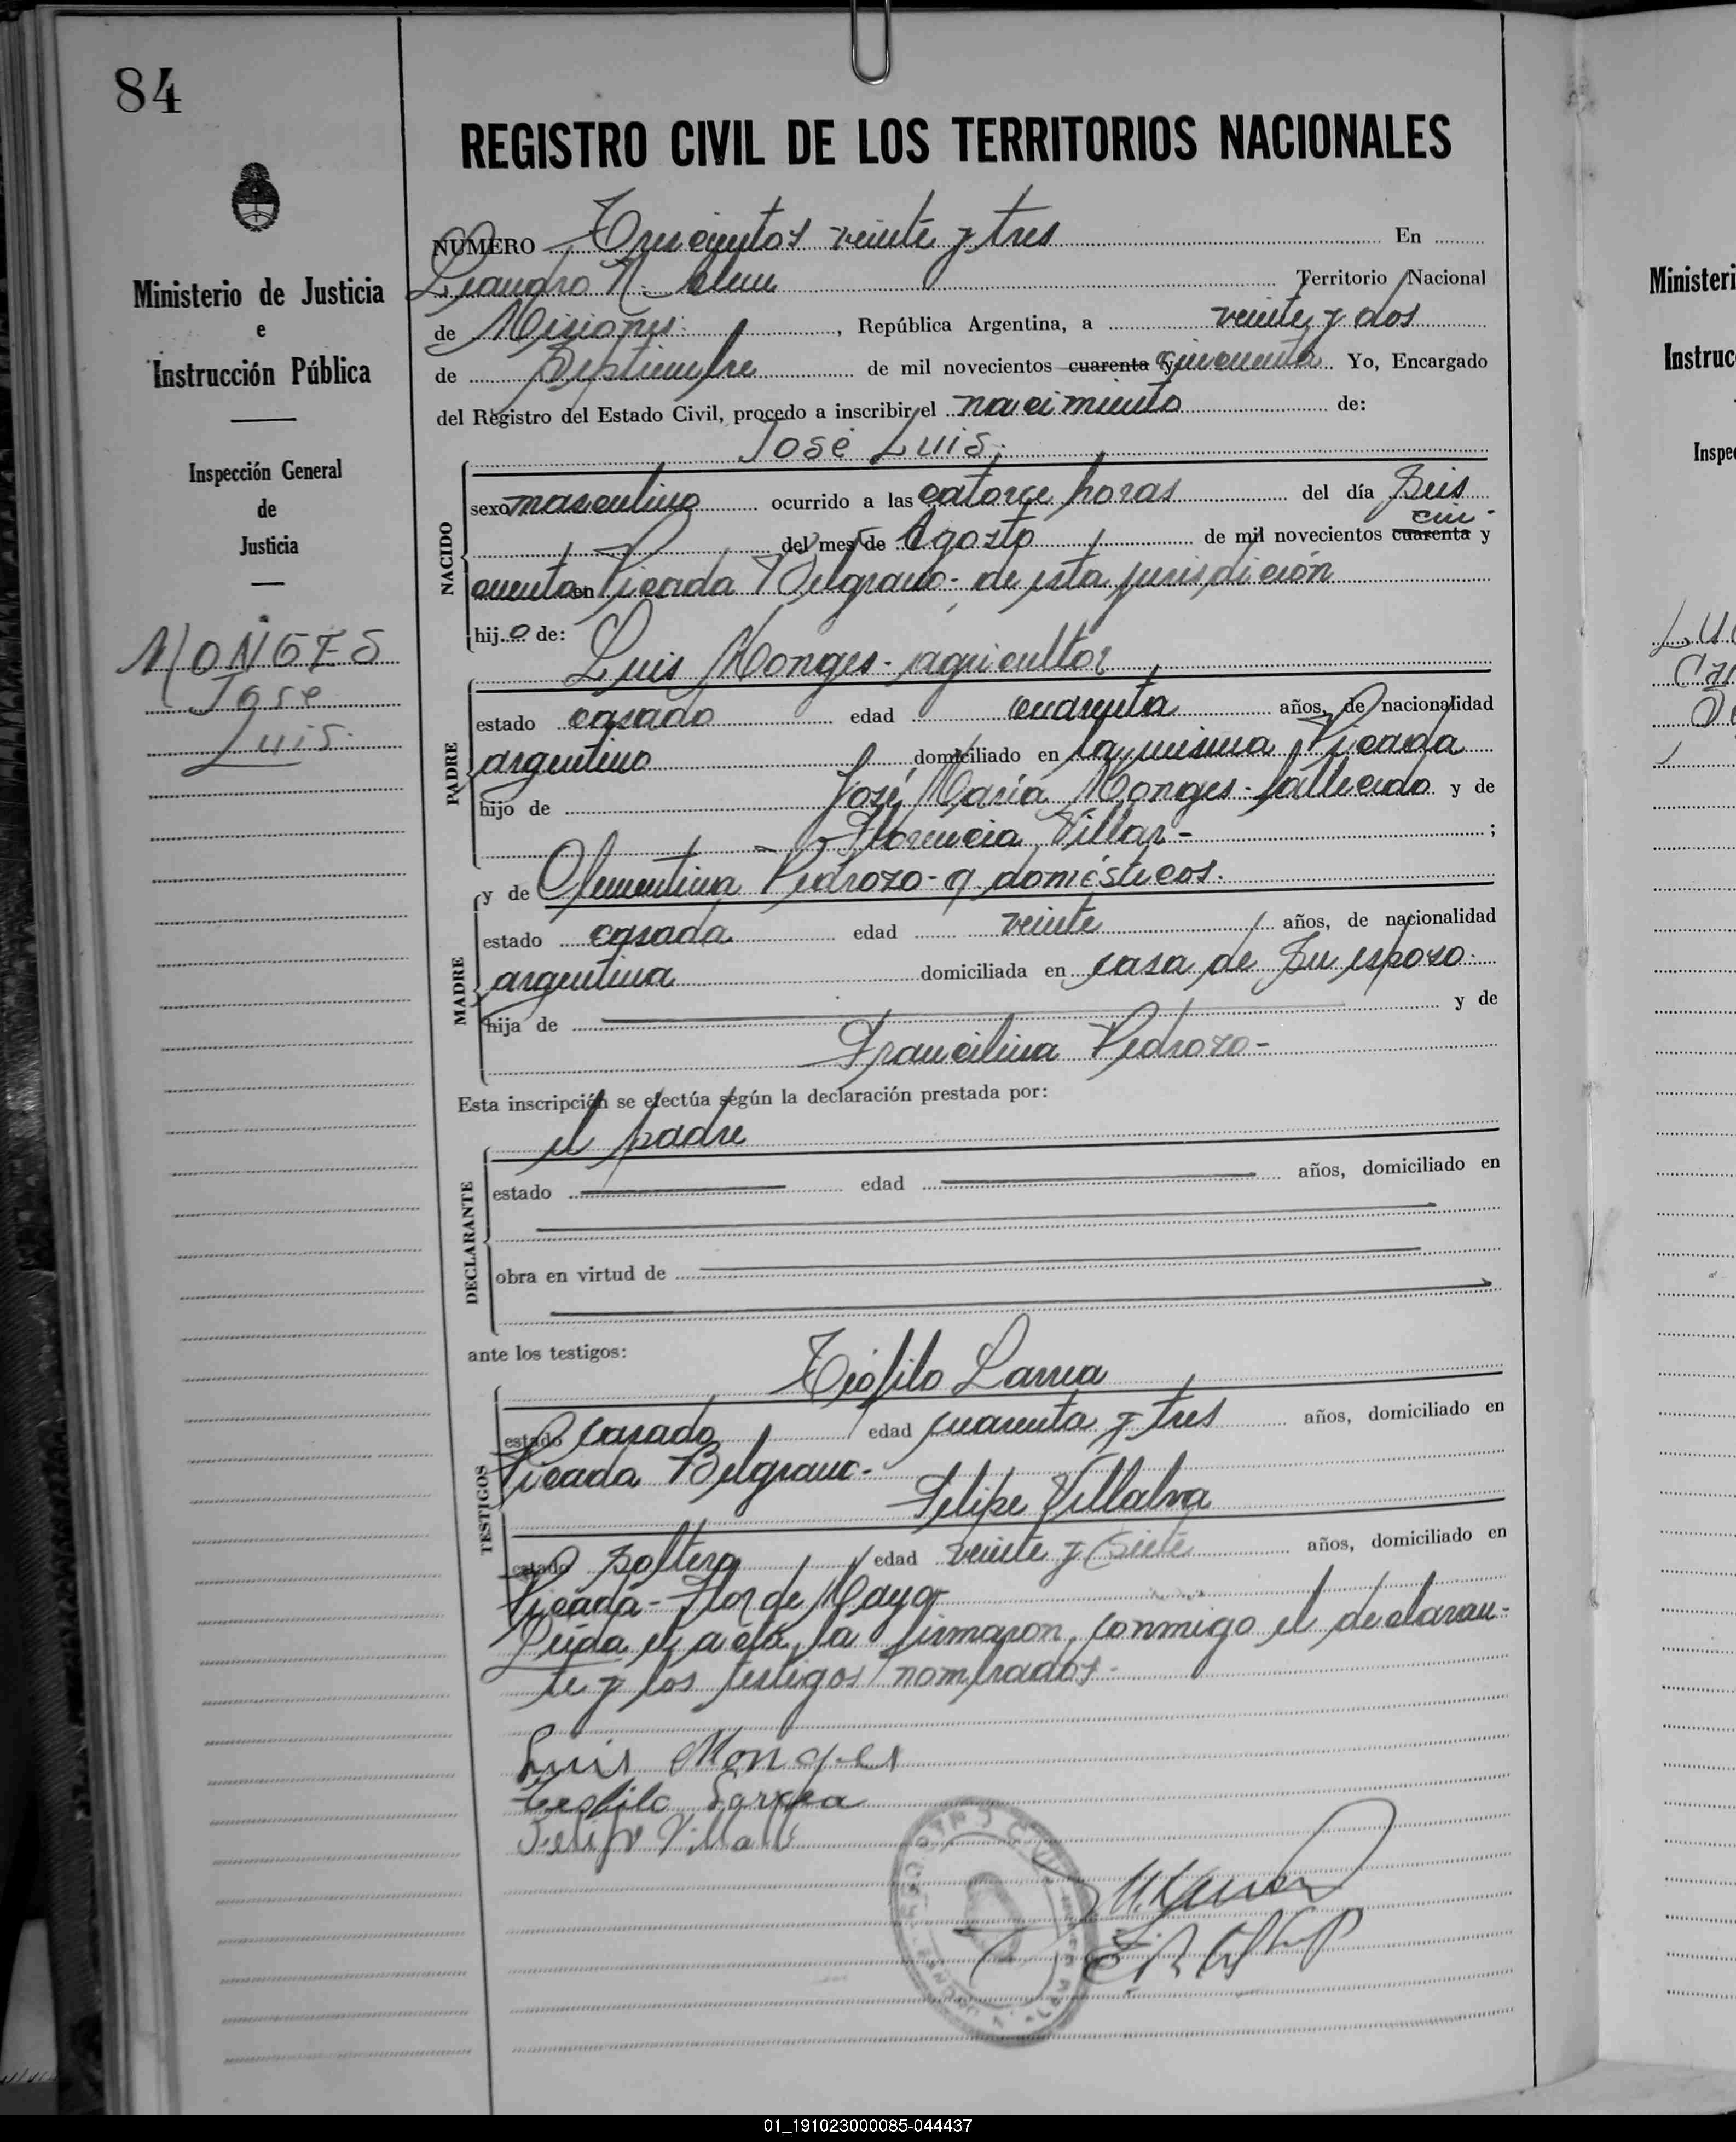 84
REGISTRO CIVIL DE LOS TERRITORIOS NACIONALES
Ministerio de Justicia
e
Instrucción Pública
Inspección General
de
Justicia
MONGES
Jose
Luis.
NUMERO Trescientos veinte y tres En
Leandro N. Alem Territorio Nacional
de Misiones. , República Argentina, a veinte y dos
de Septiembre de mil novecientos cuarenta y cincuenta. Yo, Encargado
del Registro del Estado Civil, procedo a inscribir el nacimiento de:
José Luis.
NACIDO
sexo masculino ocurrido a las catorce horas del día Seis
del mes de Agosto de mil novecientos cuarenta y cin-
cuenta en Picada Belgrano- de esta jurisdición
hijo de:
Luis Monges- agricultor
PADRE
estado casado edad cuarenta años, de nacionalidad
argentino domiciliado en la misma Picada
hijo de José María Monges- fallecido y de
Florencia Villar- ;
y de Clementina Pedrozo- q. domésticos.
MADRE
estado casada edad veinte años, de nacionalidad
argentina domiciliada en casa de Su esposo.
hija de y de
Francilina Pedrozo-
Esta inscripción se efectúa según la declaración prestada por:
el padre
DECLARANTE
estado edad años, domiciliado en
obra en virtud de
ante los testigos:
Teófilo Larrea
TESTIGOS
estado Casado edad cuarenta y tres años, domiciliado en
Picada Belgrano-
Felipe Villalva
estado Soltero edad veinte y Siete años, domiciliado en
Picada- Flor de Mayo-
Leída el acta, la firmaron conmigo el declaran-
te y los testigos nombrados-
Luis Monges
Teofilo Larrea
Felipe Villalb
Ministeri
Instruc
Inspe
01_191023000085-044437